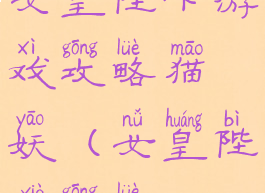 女皇陛下游
xì gōng lüè māo
戏攻略猫
yāo nǚ huáng bì
妖（女皇陛
xì gōng lüè